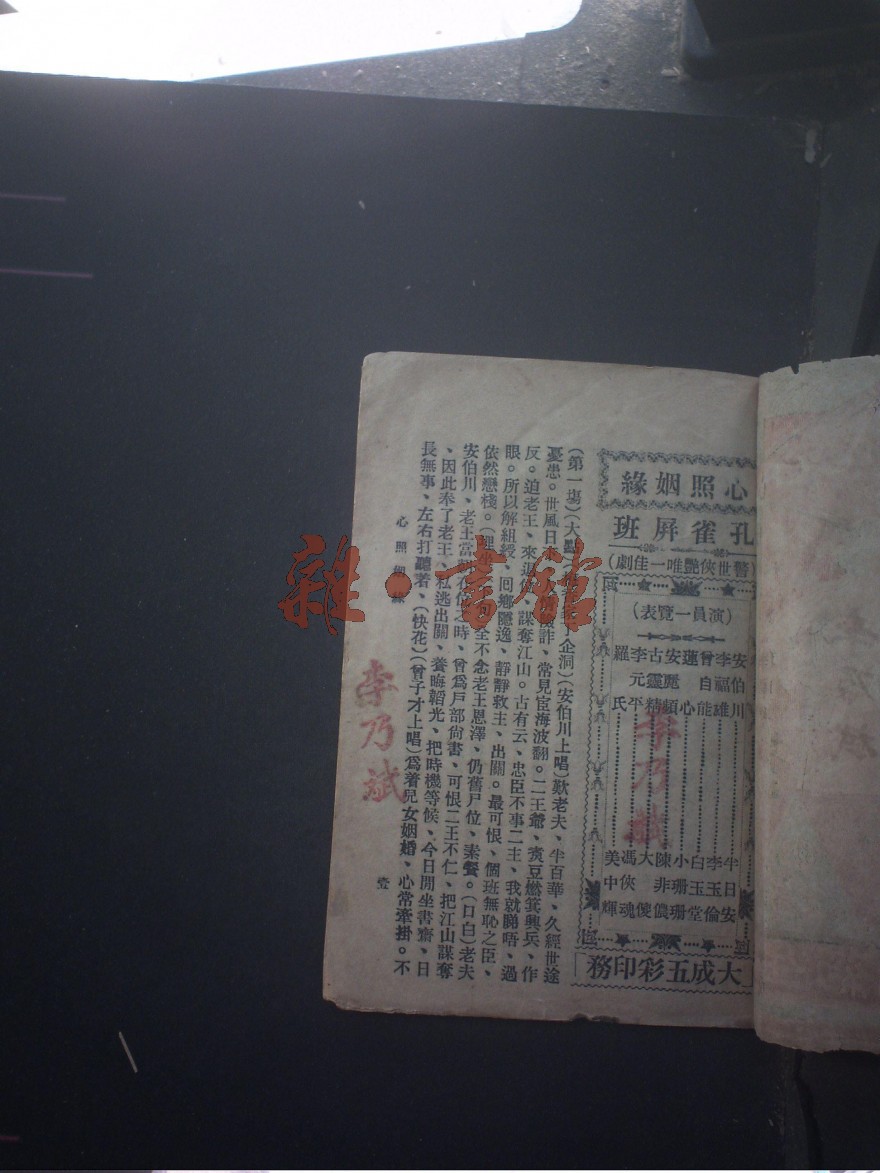 心照姻緣
孔雀屏班
(警世俠艷唯一佳劇)
(演員一覽表)
安伯川
李福雄
曾自能
蓮心
安麗頻
古靈精
李元平
羅氏
半日安
李玉倫
白玉堂
小珊珊
陳非儂
大傻
馮俠魂
美中輝
大成五彩印務
(第一塲)(大點 企洞)(安伯川上唱)歎老夫、半百華、久經世途
憂患。世風日 詐、常見宦海波翻。二王爺、煑豆燃箕興兵、作
反。迫老王、來退位、謀奪江山。古有云、忠臣不事二主、我就睇唔、過
眼。所以解組綬、囘鄉隱逸、靜靜救主、出關。最可恨、個班無恥之臣、
依然戀棧。 全不念老王恩澤、仍舊尸位、素餐。(口白)老夫
安伯川、老王當 在位之時、曾爲戶部尙書、可恨二王不仁、把江山謀奪
、因此奉了老王、私逃出關、養晦韜光、把時機等候、今日閒坐書齋、日
長無事、左右打聽著、(快花)(曾子才上唱)爲着兒女姻婚、心常牽掛。不
心照姻緣
壹
李乃斌
李乃斌
雜·書館